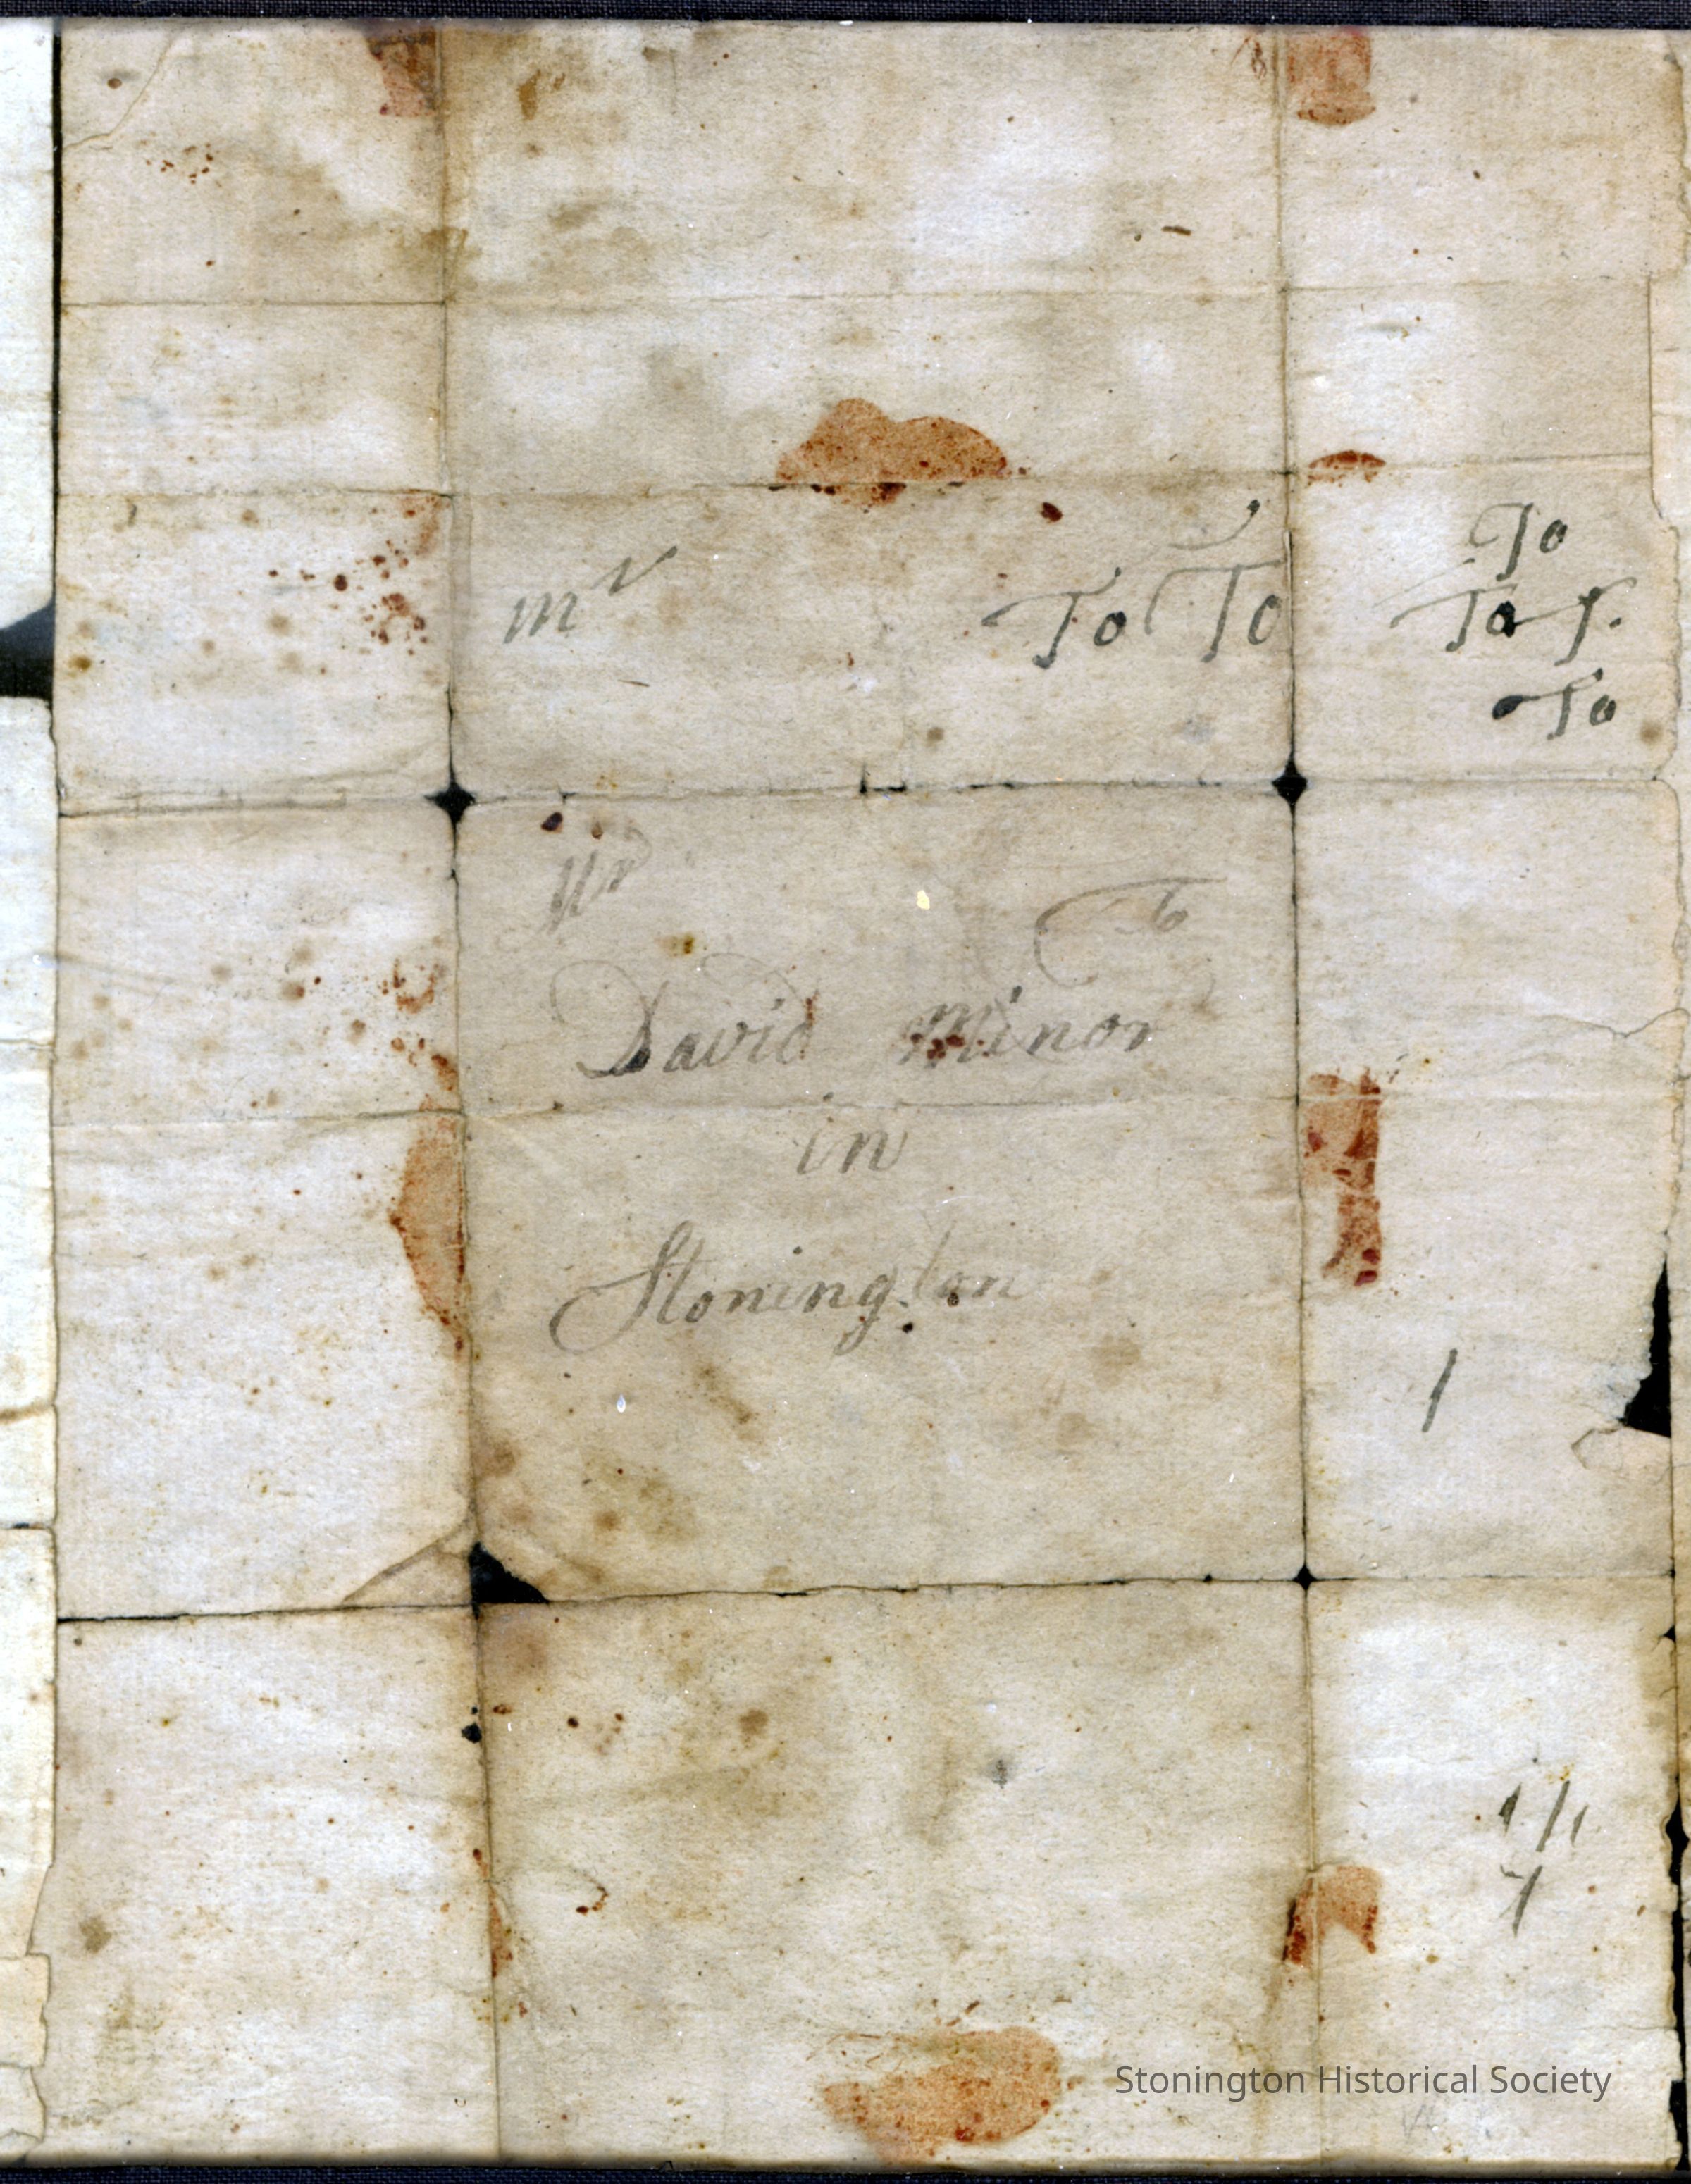 To
mr To To To T.
To
Mr To
David Minor
in
Stonington
1
Stonington Historical Society